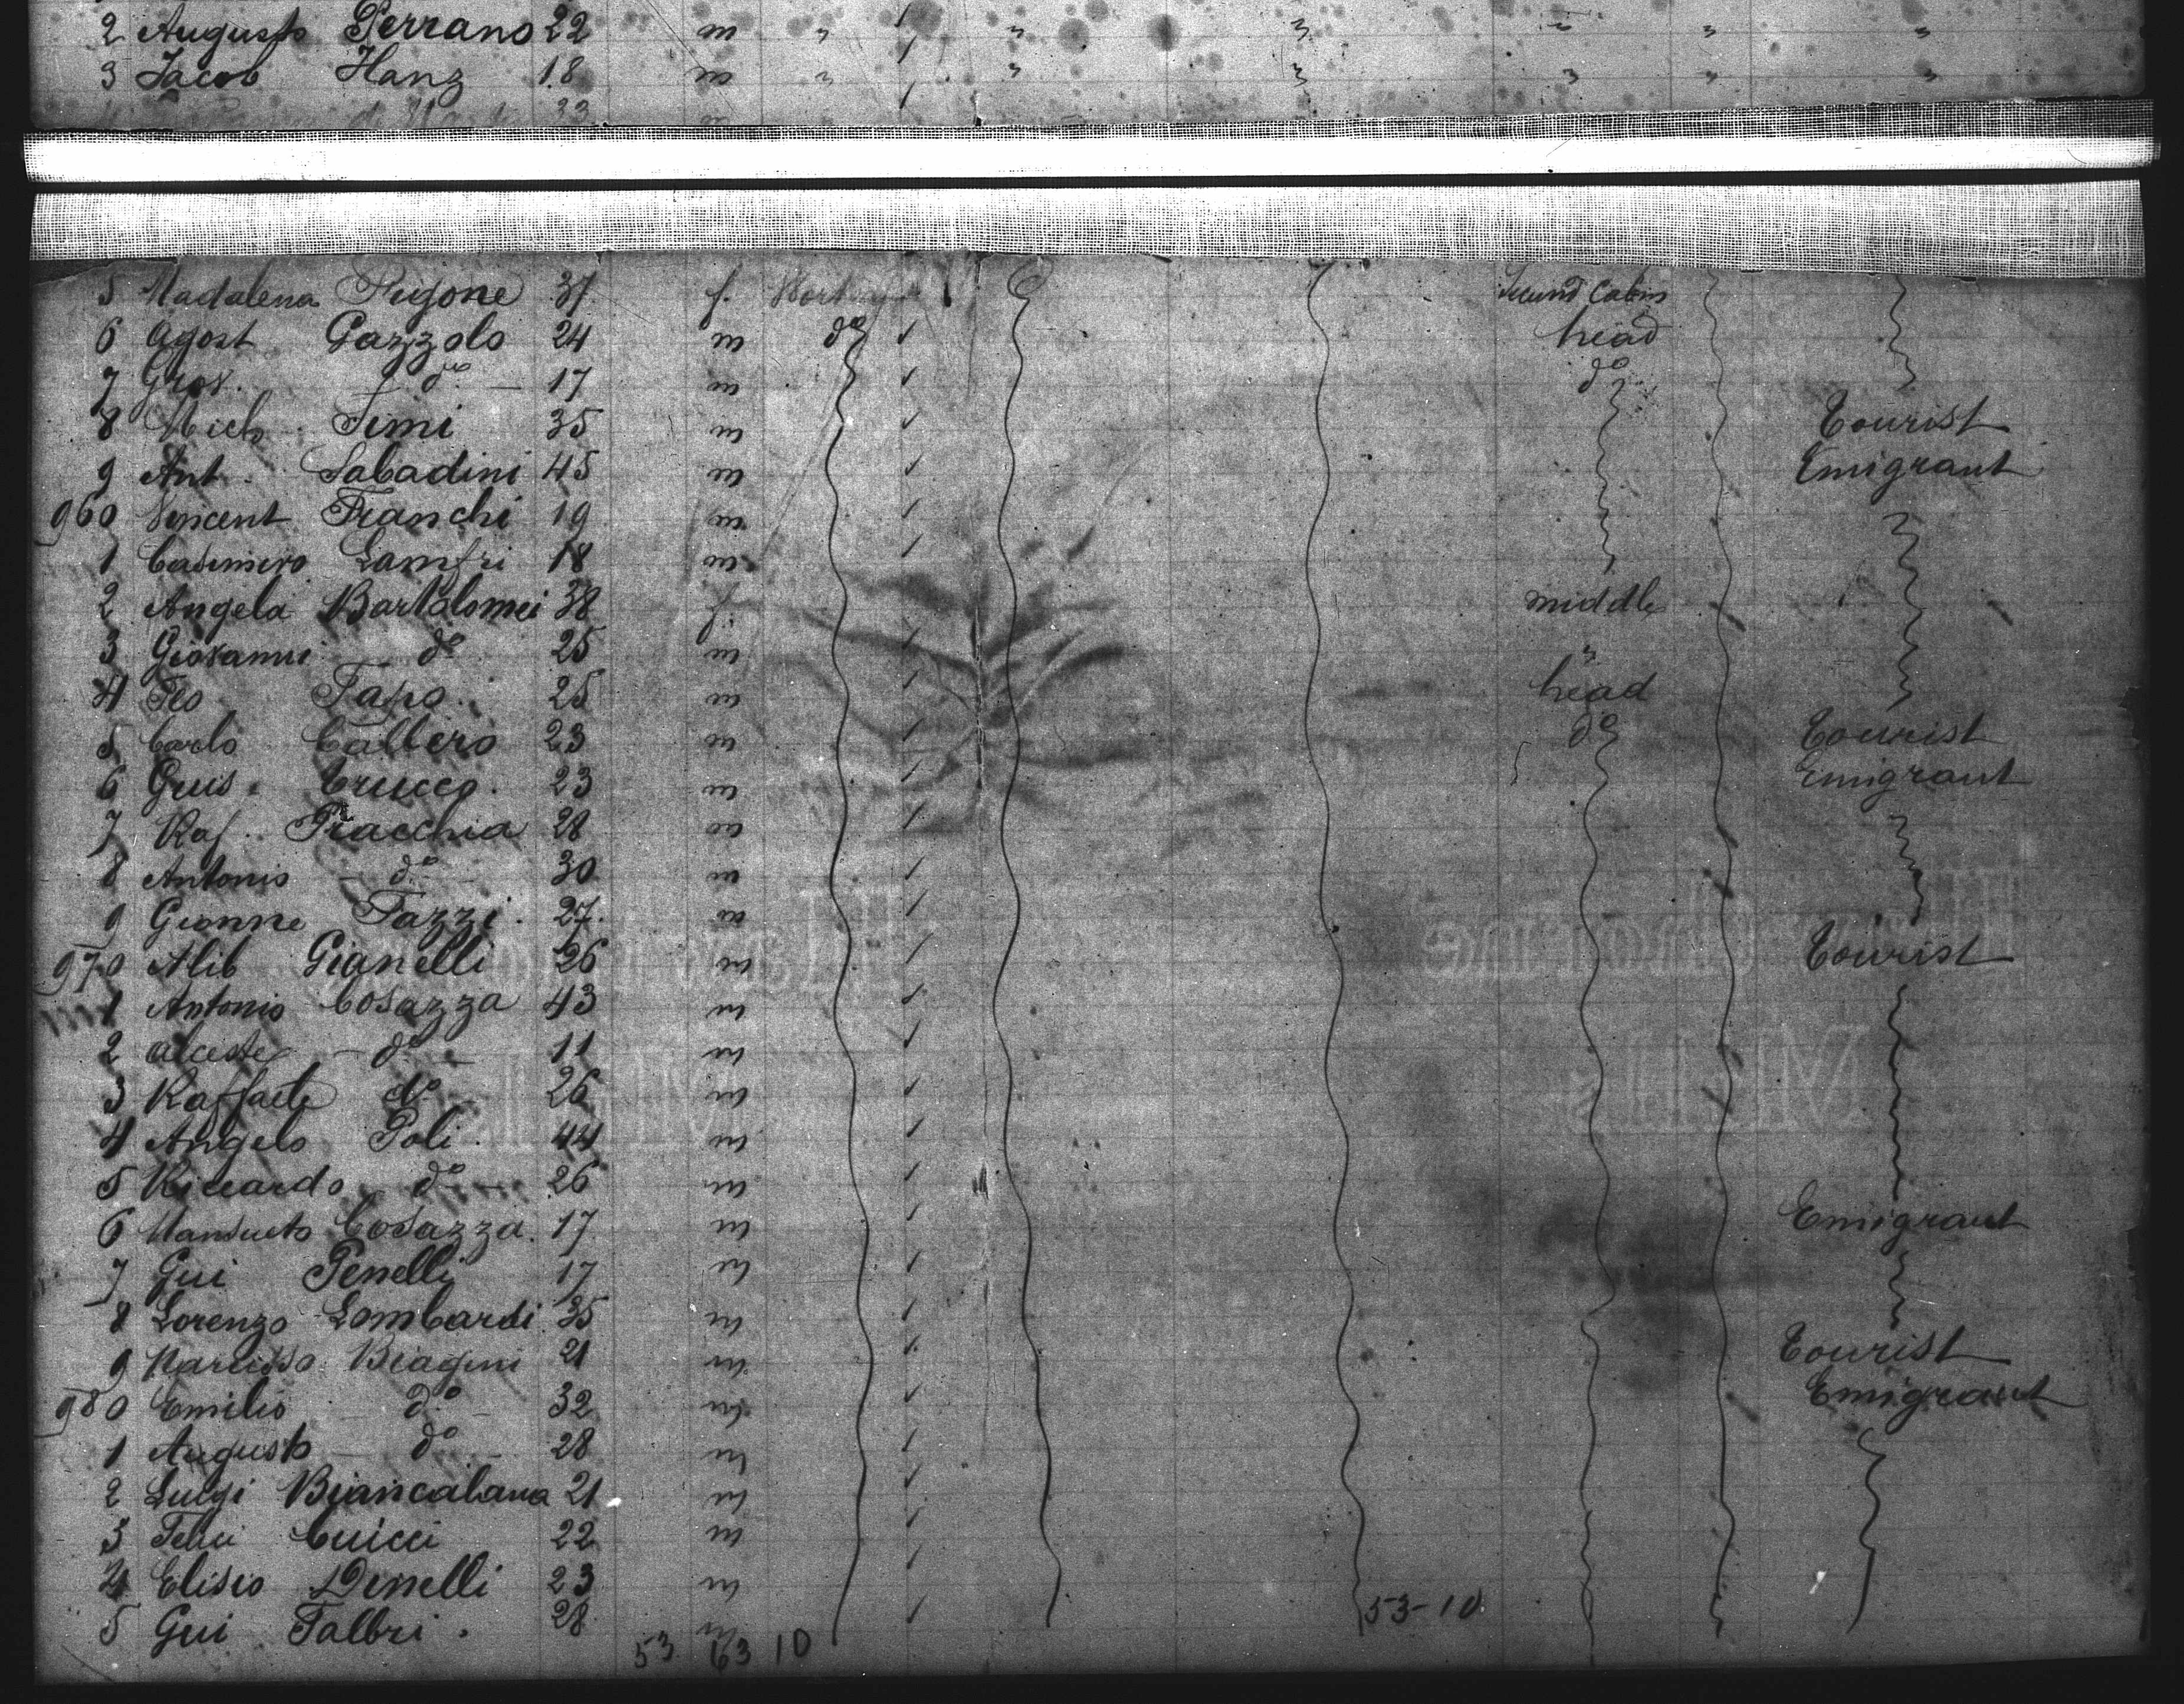 2 Augusto Perrano 22 m " " " " " "
3 Jacob Hanz 18 m " " " " " "
33
5 Madalena Pugone 37 f. Second Cabin
6 Agost Gazzolo 24 m do head
7 Giov. do 17 m do
8 Mich Simi 35 m Tourist
9 Ant. Sabadini 45 m Emigrant
960 Vincent Franchi 19 m
1 Casimiro Lamfri 18 m
2 Angela Bartolomei 38 f. middle
3 Giovanni do 25 m "
4 Teo Tapo 25 m head
5 Carlo Callero 23 m do Tourist
6 Guis. Crucco. 23 m Emigrant
7 Raf. Pracchia 28 m
8 Antonio do 30 m
9 Gionne Fazzi. 27. m
970 Alib Gianelli 26 m Tourist
1 Antonio Cosazza 43 m
2 Alceste do 11 m
3 Raffaele do 26 m
4 Angelo Poli. 44 m
5 Riccardo do 26 m
6 Mansueto Cosazza. 17 m Emigrant
7 Gui Penelli 17 m
8 Lorenzo Lombardi 35 m
9 Narcisso Biagini 21 m Tourist
980 Emilio do 32 m Emigrant
1 Augusto do 28 m
2 Luigi Biancalana 21 m
3 Felici Cuicci 22 m
4 Elisio Dinelli 23 m
5 Gui Falbri. 28 m
53 63 10 53-10